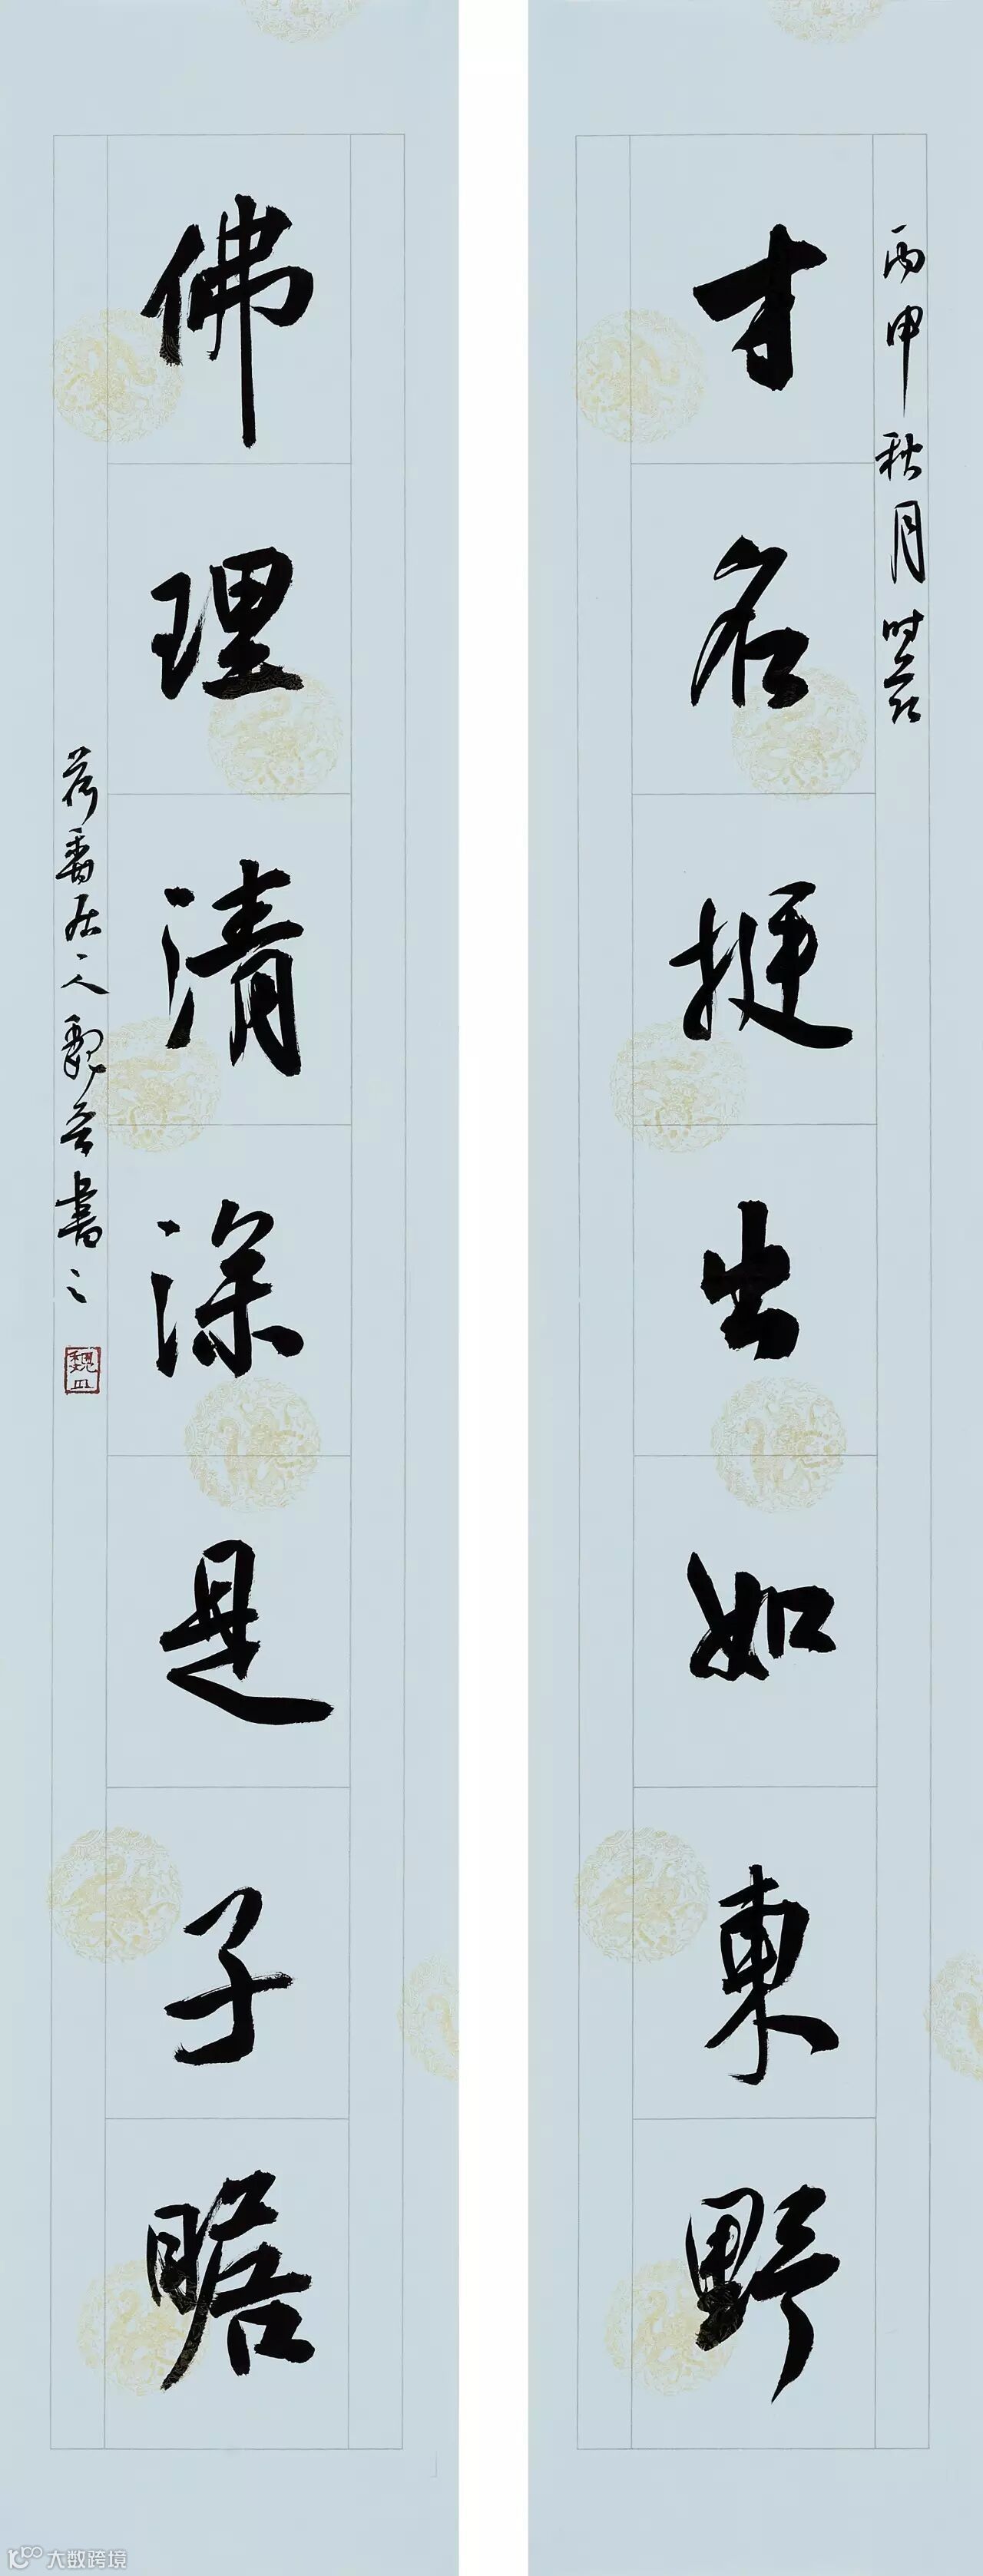 丙申秋月时
才名挺出如東野
佛理清深是子瞻
荷香居人魏書之
魏
大数跨境